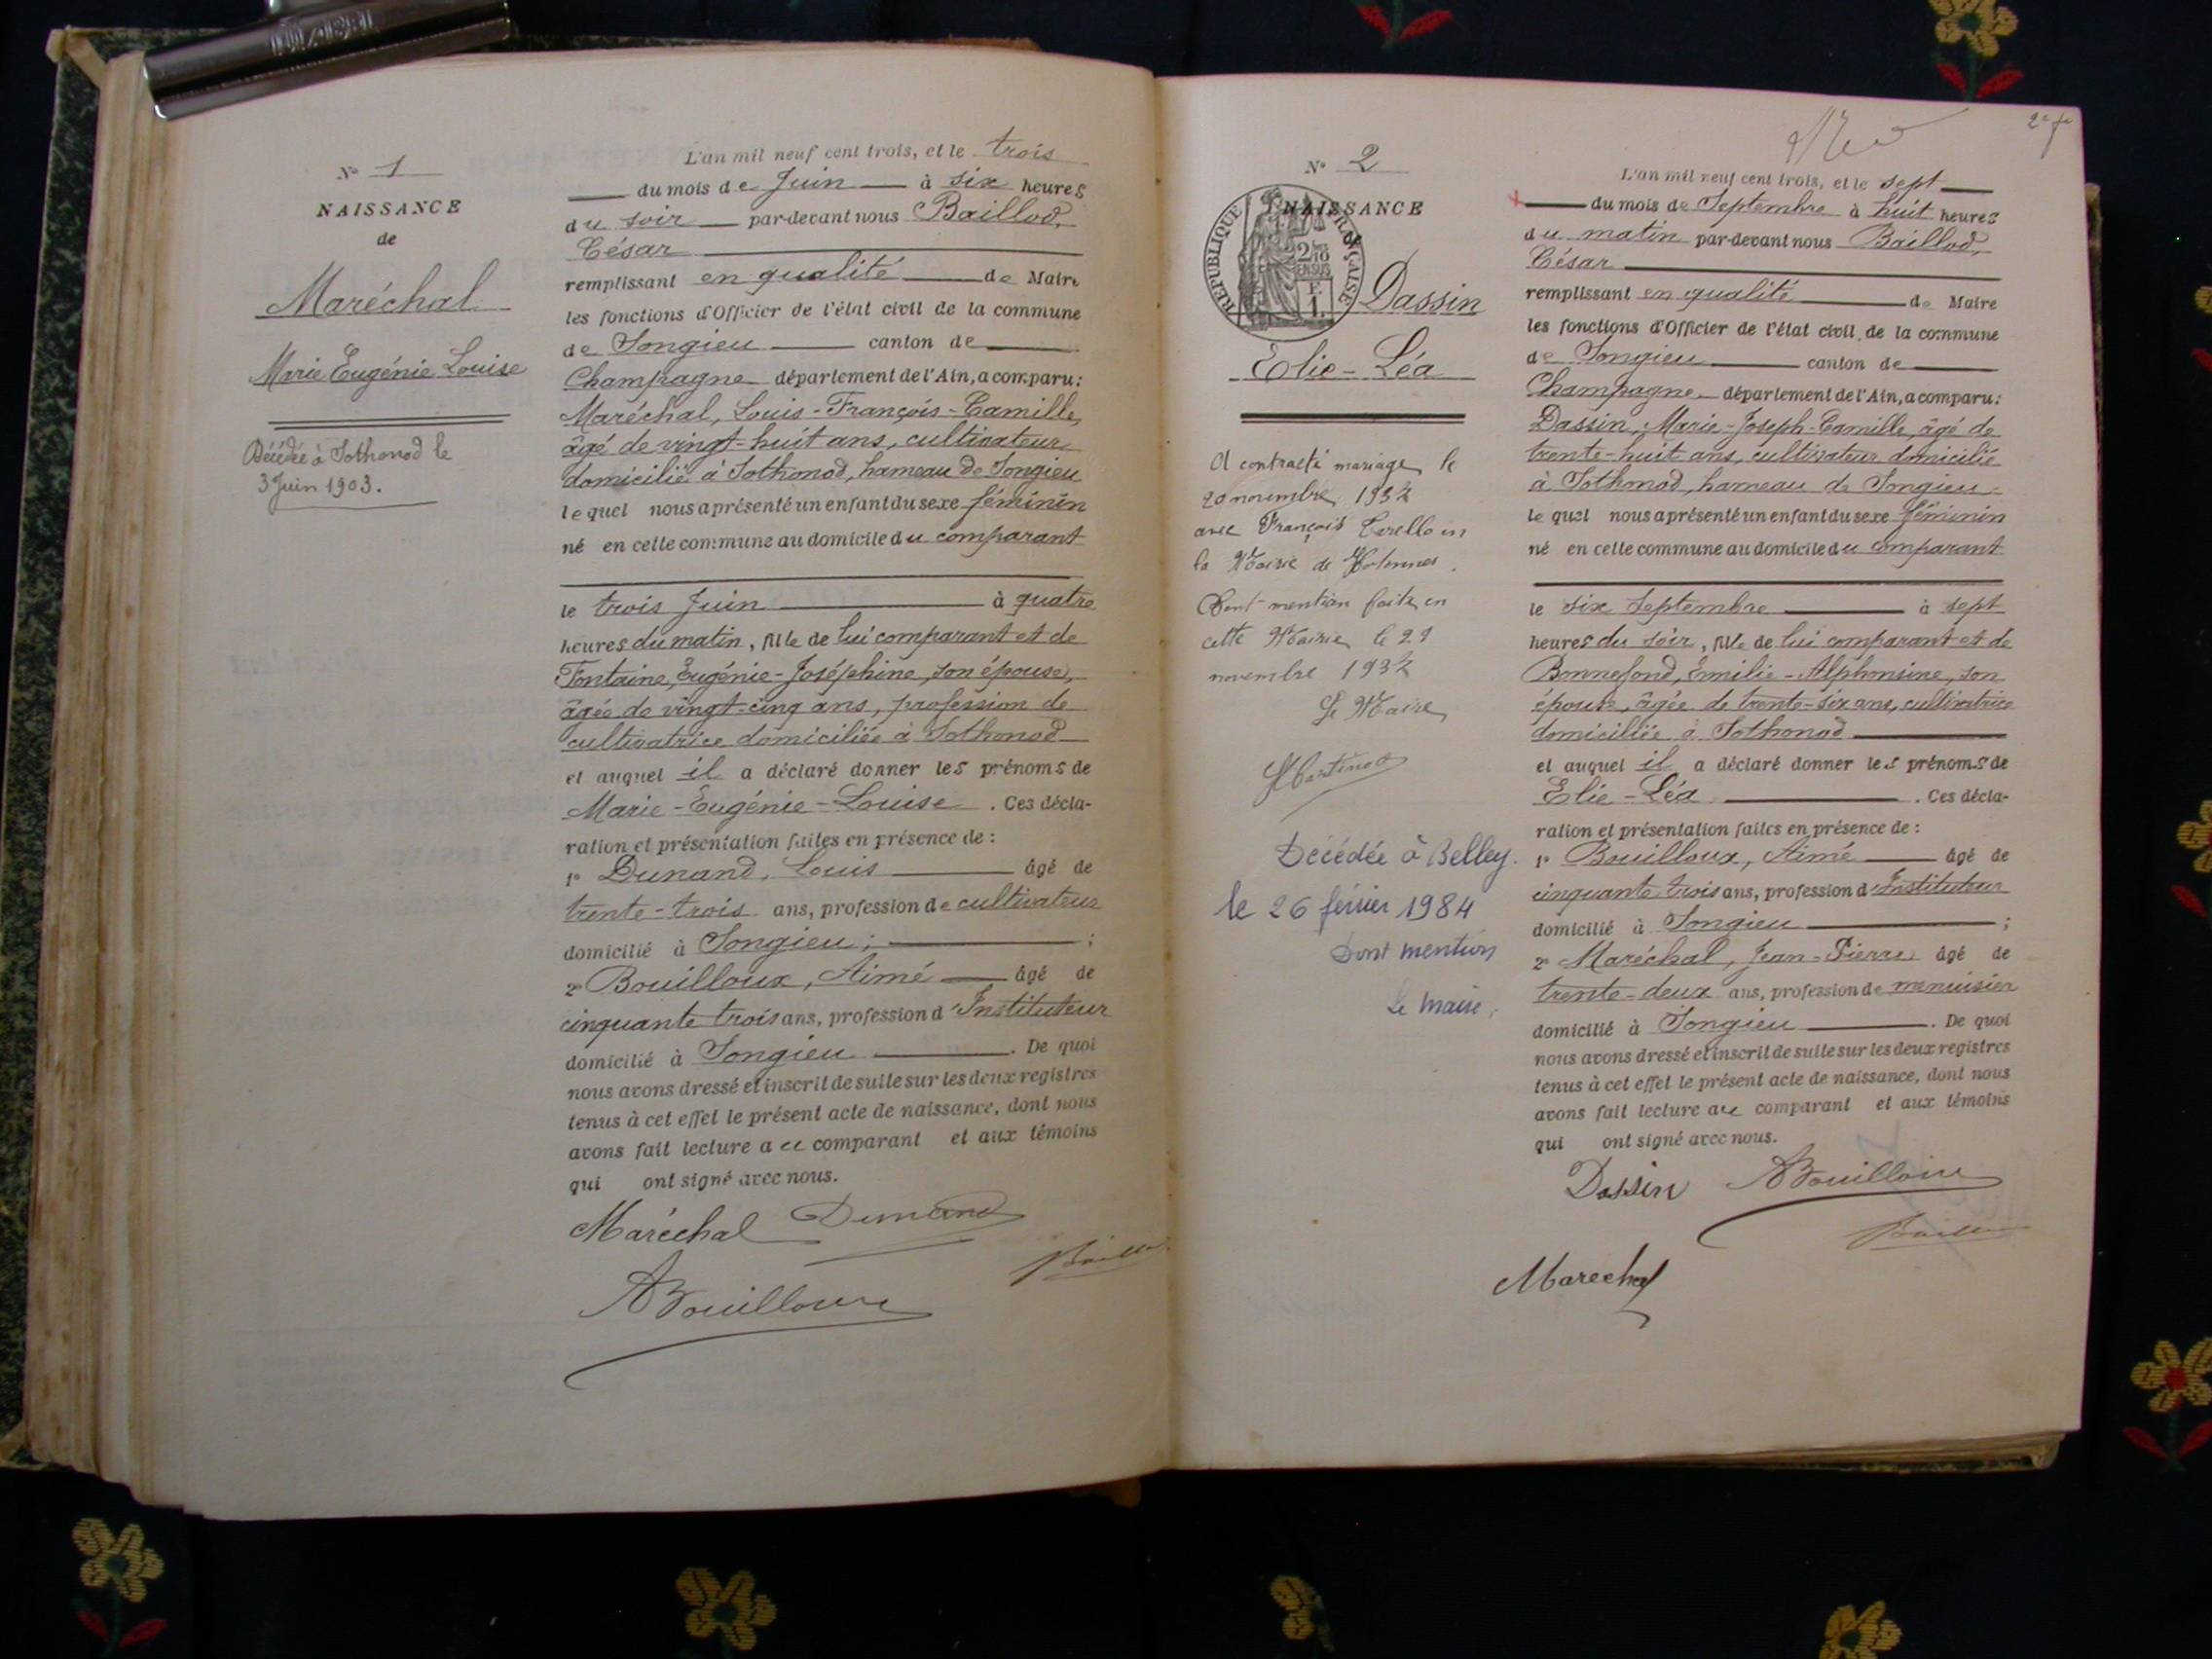 N° 1
NAISSANCE
de
Maréchal
Marie Eugénie Louise
Décédée à Sothonod le
3 Juin 1903.
L'an mil neuf cent trois, et le trois
du mois de Juin à six heures
du soir par-devant nous Baillod,
César
remplissant en qualité de Maire
les fonctions d'Officier de l'état civil de la commune
de Songieu canton de
Champagne département de l'Ain, a comparu:
Maréchal, Louis-François-Camille,
âgé de vingt-huit ans, cultivateur
domicilié à Sothonod, hameau de Songieu
lequel nous a présenté un enfant du sexe féminin
né en cette commune au domicile du comparant
le trois Juin à quatre
heures du matin, fille de lui comparant et de
Fontaine, Eugénie-Joséphine, son épouse,
âgée de vingt-cinq ans, profession de
cultivatrice domiciliée à Sothonod
et auquel il a déclaré donner les prénoms de
Marie-Eugénie-Louise. Ces décla-
ration et présentation faites en présence de:
1° Dunand, Louis âgé de
trente-trois ans, profession de cultivateur
domicilié à Songieu;
2° Bouilloux, Aimé âgé de
cinquante trois ans, profession d'Instituteur
domicilié à Songieu. De quoi
nous avons dressé et inscrit de suite sur les deux registres
tenus à cet effet le présent acte de naissance, dont nous
avons fait lecture au comparant et aux témoins
qui ont signé avec nous.
Maréchal Dunand
Baillod
ABouilloux
N° 2
NAISSANCE
de
REPUBLIQUE FRANÇAISE
2/10
EN SUS
F.
1.
Dassin
Elie-Léa
A contracté mariage le
20 novembre 1932
avec François
la Mairie de Hotonnes.
Dont mention faite en
cette Mairie le 21
novembre 1932
Le Maire
Martinod
Décédée à Belley.
le 26 février 1984
Dont mention
Le Maire,
L'an mil neuf cent trois, et le sept
du mois de Septembre à huit heures
du matin par-devant nous Baillod,
César
remplissant en qualité de Maire
les fonctions d'Officier de l'état civil de la commune
de Songieu canton de
Champagne département de l'Ain, a comparu:
Dassin, Marie-Joseph-Camille, âgé de
trente-huit ans, cultivateur domicilié
à Sothonod, hameau de Songieu
lequel nous a présenté un enfant du sexe féminin
né en cette commune au domicile du comparant
le six Septembre à sept
heures du soir, fille de lui comparant et de
Bonnefond, Emilie-Alphonsine, son
épouse, âgée de trente-six ans, cultivatrice
domiciliée à Sothonod
et auquel il a déclaré donner les prénoms de
Elie-Léa. Ces décla-
ration et présentation faites en présence de:
1° Bouilloux, Aimé âgé de
cinquante trois ans, profession d'Instituteur
domicilié à Songieu;
2° Maréchal, Jean-Pierre âgé de
trente-deux ans, profession de menuisier
domicilié à Songieu. De quoi
nous avons dressé et inscrit de suite sur les deux registres
tenus à cet effet le présent acte de naissance, dont nous
avons fait lecture au comparant et aux témoins
qui ont signé avec nous.
Dassin ABouilloux
Baillod
Marechal